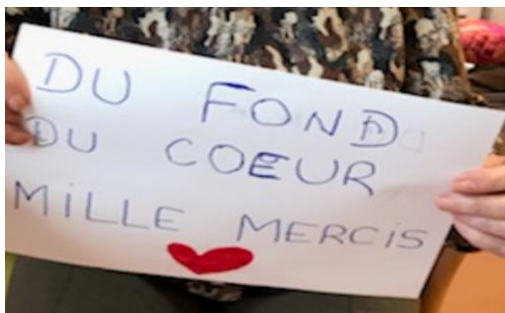 DU FOND
DU COEUR
MiLLE MERCiS